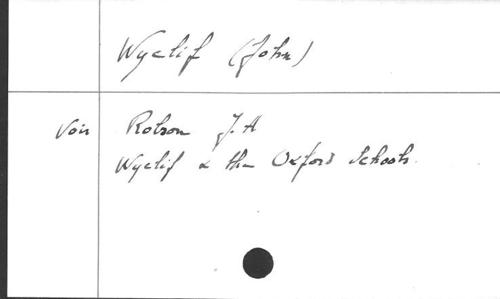 Wyclif (John)
Voir Robson J.A
Wyclif & the Oxford Schools.